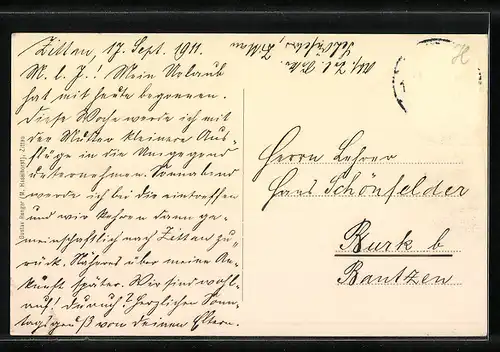 Zittau, 17. Sept. 1911.
M. l. J.! Mein Urlaub
hat mit heute begonnen.
Diese Woche werde ich mit
der Mutter kleinere Aus-
flüge in die Umgegend
unternehmen. Sonnabend
werde ich bei dir eintreffen
und wir kehren dann ge-
meinschaftlich nach Zittau zu-
rück. Näheres über meine An-
kunft später. Wir sind wohl-
auf! Du auch? Herzlichen Sonn-
tagsgruß von deinen Eltern.
Schönfelder, Zittau
Herrn Lehrer
Hans Schönfelder
Burk b
Bautzen